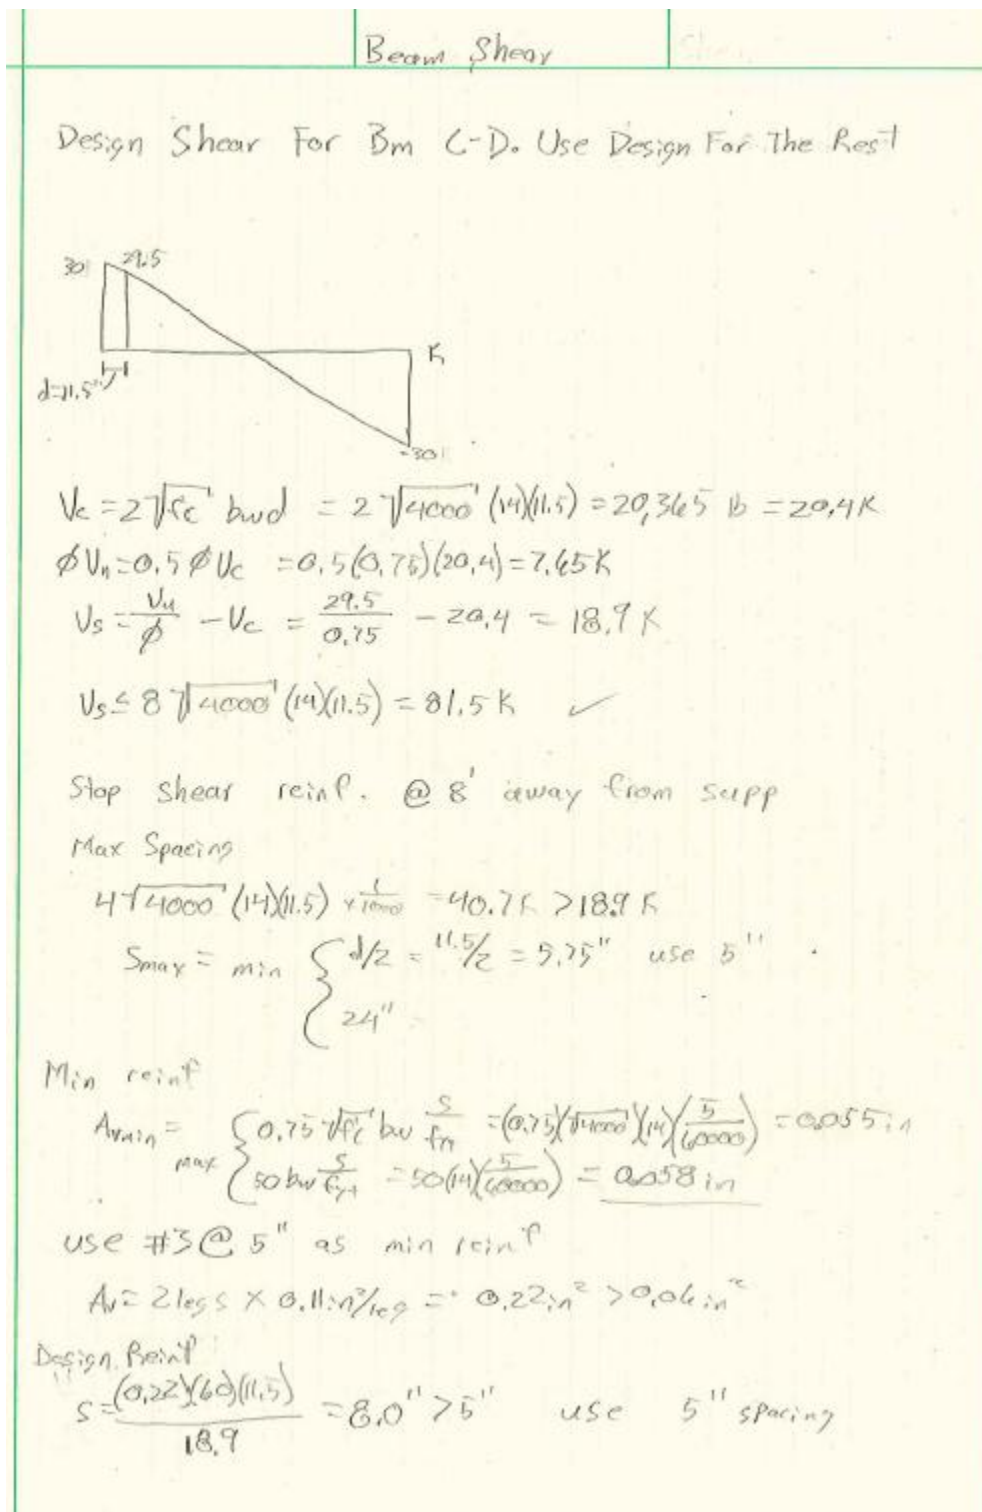 Beam Shear
Design Shear For Bm C-D. Use Design For The Rest
30 29.5
K
d=11.5"
-30
Vc = 2√fc' bwd = 2√4000' (14)(11.5) = 20,365 lb = 20.4K
ϕVn = 0.5 ϕVc = 0.5(0.75)(20.4) = 7.65K
Vs = Vu/ϕ - Vc = 29.5/0.75 - 20.4 = 18.9 K
Vs ≤ 8√4000' (14)(11.5) = 81.5 K ✓
Stop shear reinf. @ 8' away from supp
Max Spacing
4√4000' (14)(11.5) × 1/1000 = 40.7K > 18.9 K
Smax = min { d/2 = 11.5/2 = 5.75" use 5"
24"
Min reinf
Avmin = max { 0.75 √fc' bw s/fyt = (0.75)(√4000')(14)(5/60000) = 0.055 in
50 bw s/fyt = 50(14)(5/60000) = 0.058 in
use #3 @ 5" as min reinf
Av = 2 legs × 0.11 in²/leg = 0.22 in² > 0.06 in²
Design Reinf
s = (0.22)(60)(11.5)/18.9 = 8.0" > 5" use 5" spacing